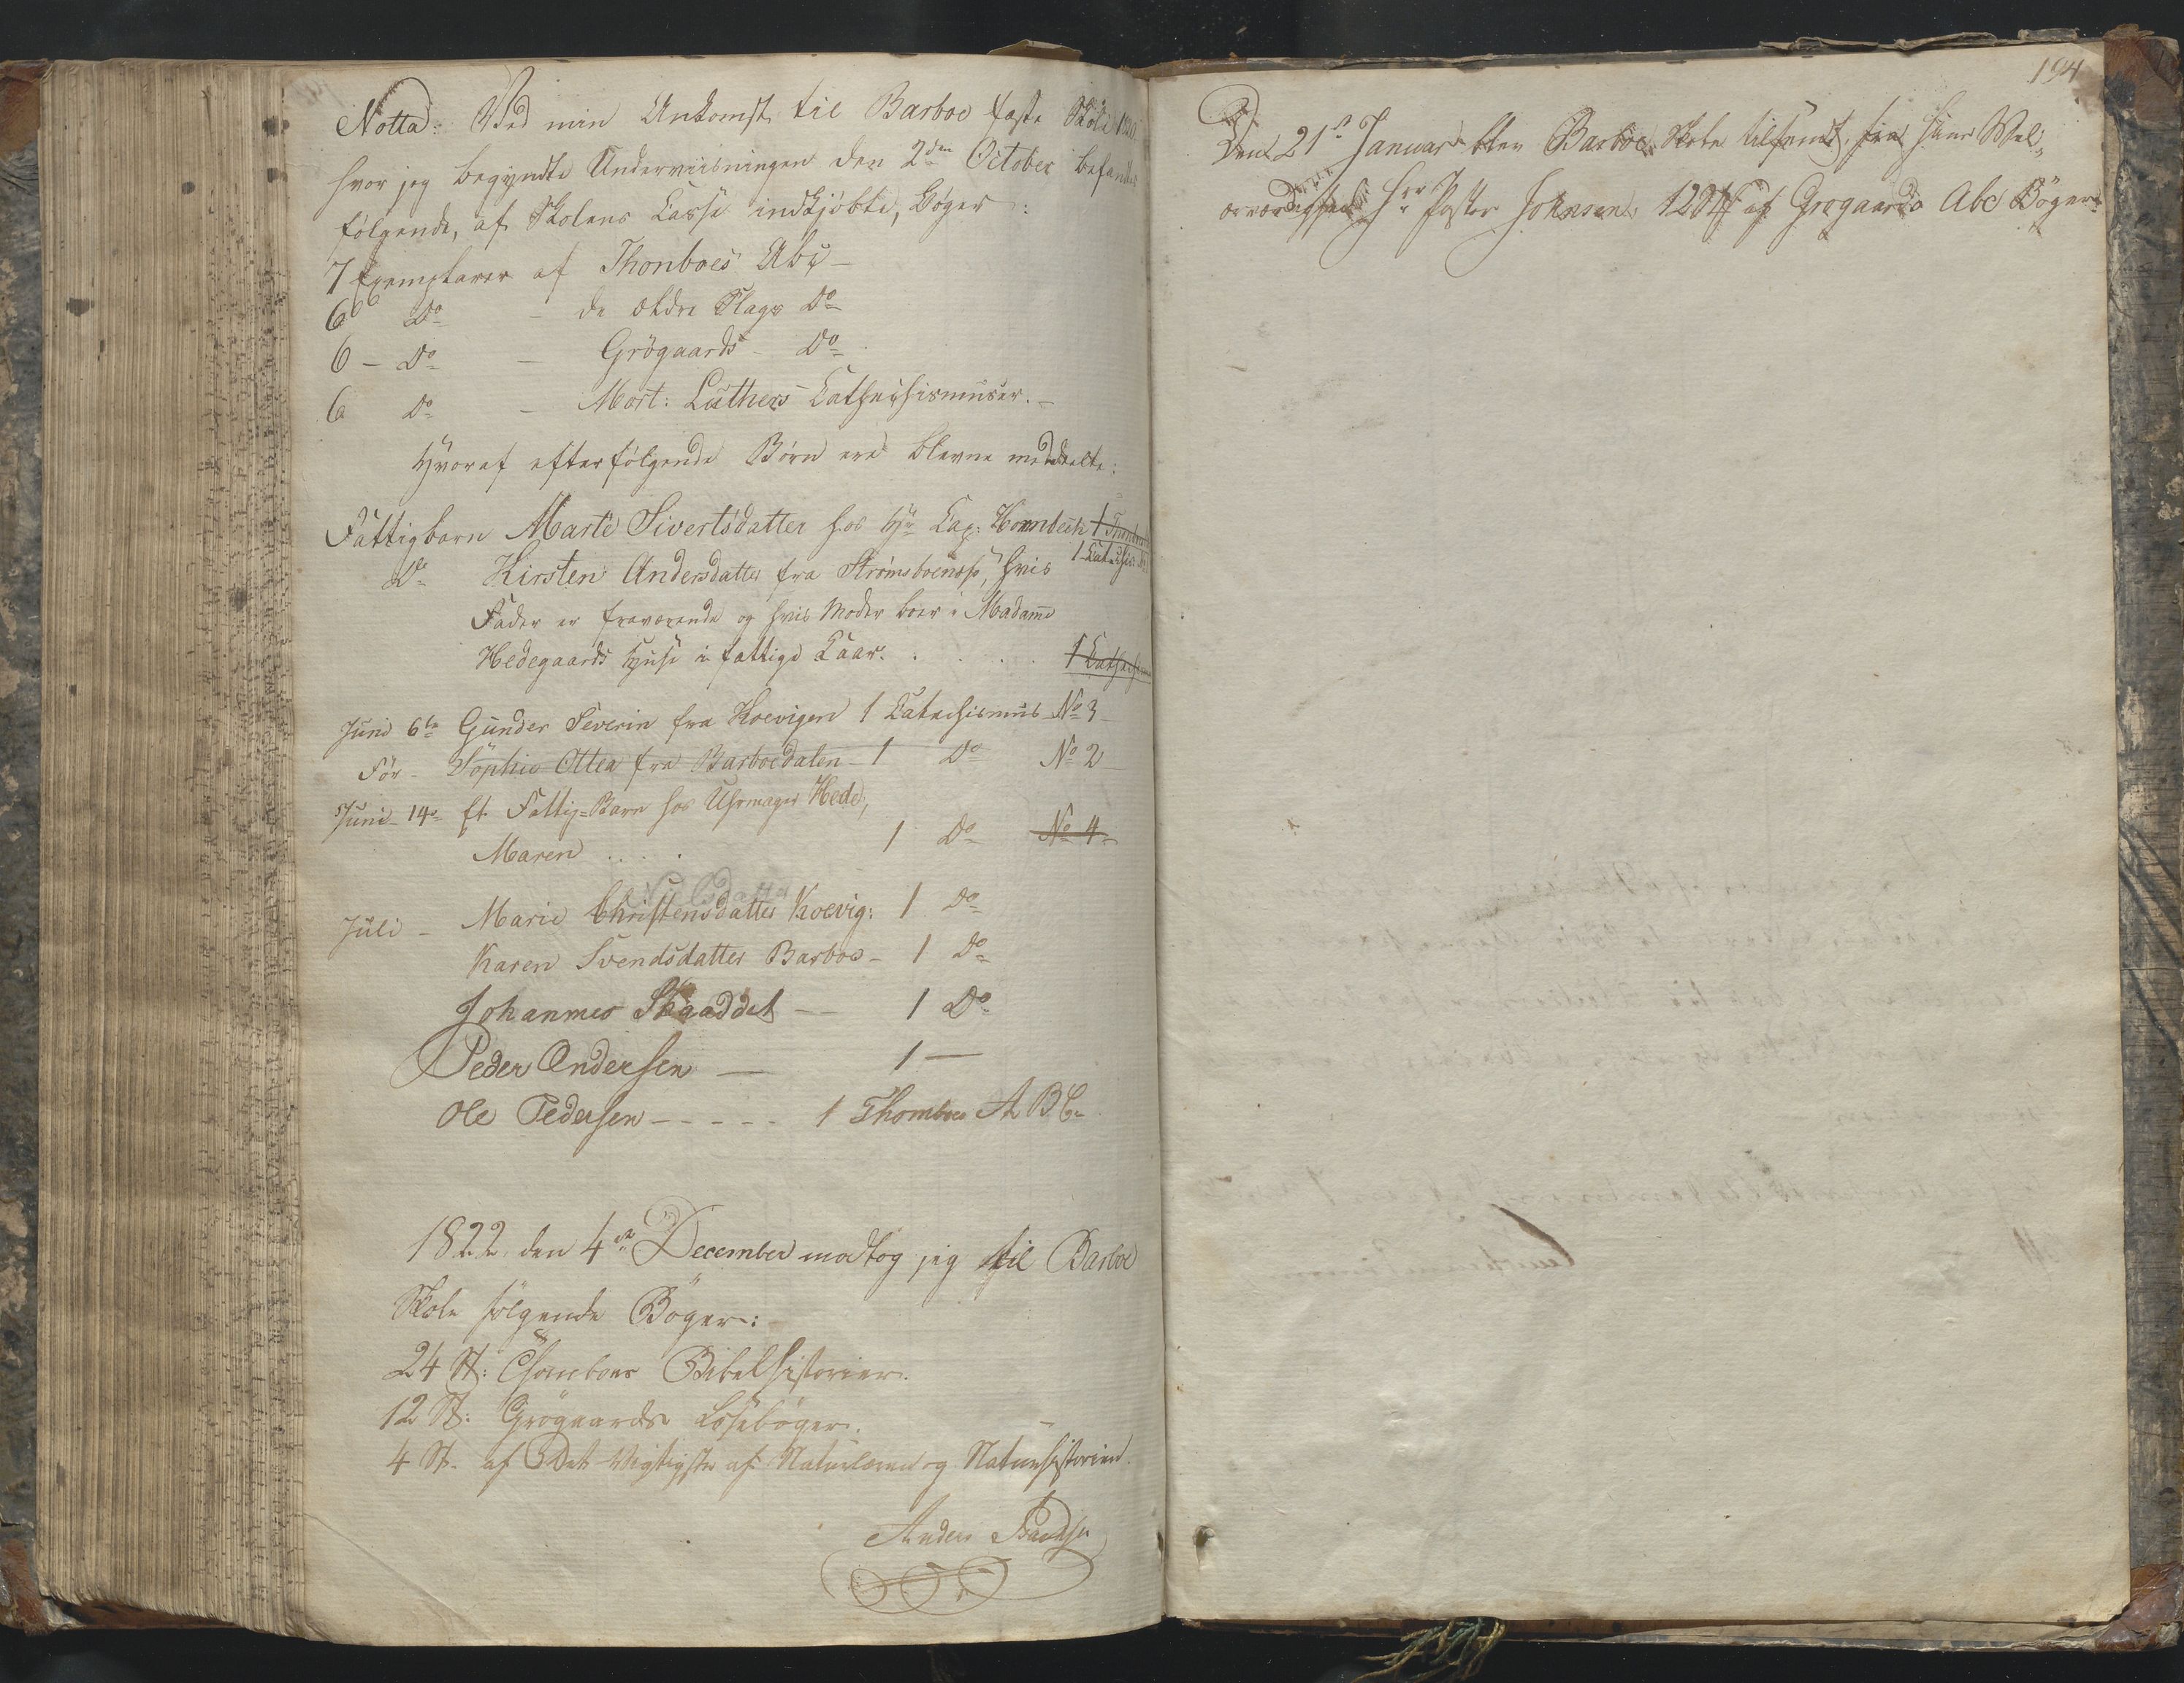 Notta: Ved min Ankomst til Barboe faste Skole
hvor jeg begyndte Underviisningen den 2den October befandtes
følgende, af Skolens Casse indkjøbte, Bøger:
7 Exemplarer af Thonboes Abc –
6 Do – de ældre Slags Do
6 – Do – Grögaards – Do
6 Do – Mort: Luthers Cathechismuser. –
Hvoraf efterfølgende Börn ere blevne meddeelte:
Fattigbarn Marte Sivertsdatter hos Hr Cap: Hornbech 1
Do Kirsten Andersdatter fra Strömsboenæs, hvis
Fader er fraværende og hvis Moder boer i Madame
Hedegaards Huse i fattige Kaar. . . . . .
Juni 6te Gunder Severin fra Koevigen 1 Catechismus No 3
Før – Sophie Ottea fra Barboedalen – 1 Do No 2
Juni – 14 – Et Fattig-Barn hos Uhrmager Hede,
Maren . . . . 1 Do No 4
Juli – Marie Christensdatter Koevig: 1 Do
Karen Svendsdatter Barboe – 1 Do
Johannes Skaaddet – 1 Do
Peder Andersen – 1 –
Ole Pedersen – – – – – 1 Thomboes A B C
1822 den 4de December modtog jeg til Barboe
Skole følgende Bøger:
24 St: Thonboes Bibelhistorier.
12 St: Grögaards Læsebøger.
4 St. af Det Vigtigste af Naturlæren og Naturhistorien.
Anders
194
Den 21de Januar blev Barboe Skole tilsendt fra Hans Vel-
ærværdighed Hrr Pastor Johnsen 12 St af Grøgaards Abc Bøger